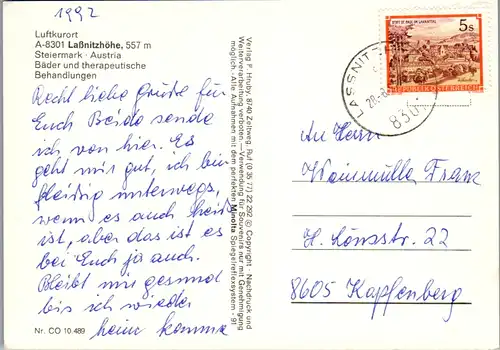 1992
Luftkurort
A-8301 Laßnitzhöhe, 557 m
Steiermark · Austria
Bäder und therapeutische
Behandlungen
Recht liebe Grüße für
Euch Beide sende
ich von hier. Es
geht mir gut, ich bin
fleißig unterwegs,
wenn es auch heiß
ist, aber das ist es
bei Euch ja auch.
Bleibt mir gesund
bis ich wieder
heim komme
Nr. CO 10.489
Verlag F. Hruby, 8740 Zeltweg, Ruf (0 35 77) 22 252 © Copyright · Nachdruck und
Weiterverarbeitung verboten. — Verwendung für Souvenirs nur mit Genehmigung
möglich. - Alle Aufnahmen mit dem perfekten Minolta Spiegelreflexsystem - 91
STIFT ST. PAUL IM LAVANTTAL
5s
REPUBLIK ÖSTERREICH
LASSNITZ
8301
An Herrn
Franz
H. Lönsstr. 22
8605 Kapfenberg